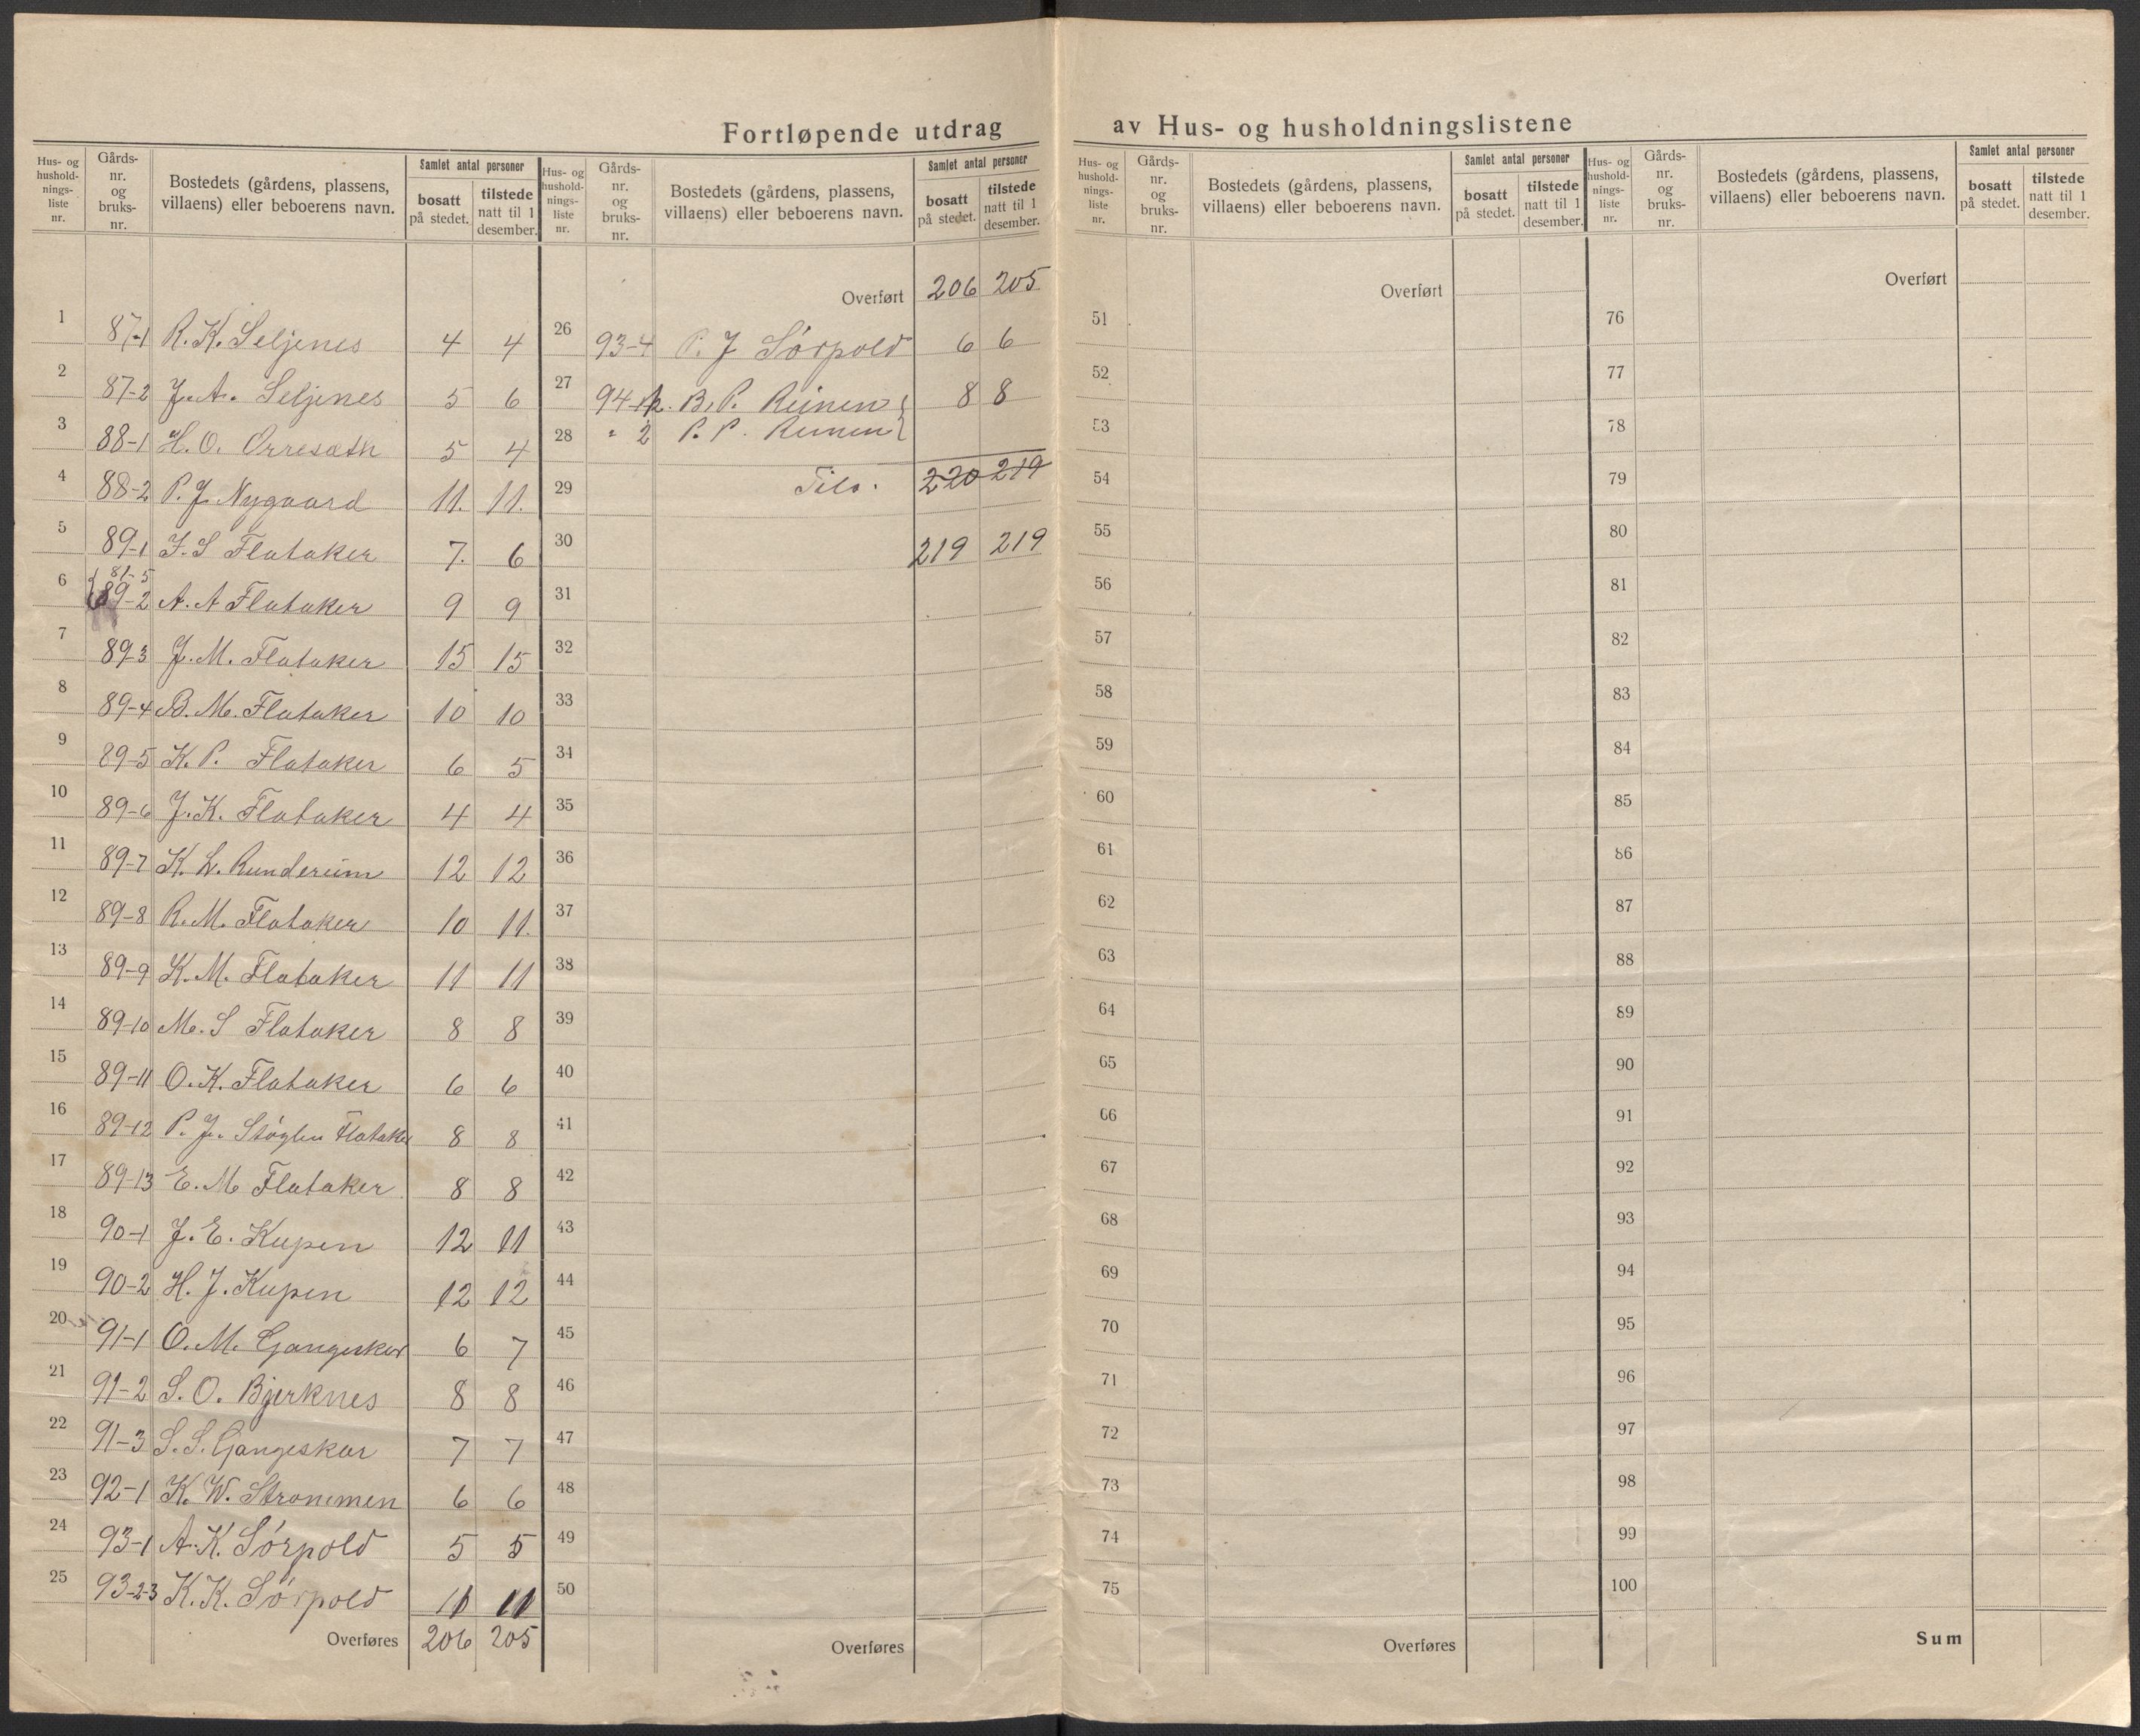 Fortløpende utdrag av Hus- og husholdningslistene
Hus- og
hushold-
nings-
liste
nr.
Gårds-
nr.
og
bruks-
nr.
Bostedets (gårdens, plassens,
villaens) eller beboerens navn.
Samlet antal personer
bosatt
på stedet.
tilstede
natt til 1
desember.
1 87-1 R. K. Seljenes 4 4
2 87-2 J. A. Seljenes 5 6
3 88-1 H. O. Orresæth 5 4
4 88-2 P. J. Nygaard 11. 11.
5 89-1 J. S Flataker 7. 6
81-5
6 89-2 A. A Flataker 9 9
7 89-3 J. M. Flataker 15 15
8 89-4 B. M. Flataker 10 10
9 89-5 K. P. Flataker 6 5
10 89-6 J. K. Flataker 4 4
11 89-7 K. L. Rundereim 12 12
12 89-8 R. M. Flataker 10 11.
13 89-9 K. M. Flataker 11 11
14 89-10 M. S Flataker 8 8
15 89-11 O. K. Flataker 6 6
16 89-12 P. J. Støylen Flataker 8 8
17 89-13 E. M Flataker 8 8
18 90-1 J. E. Kupen 12 11
19 90-2 H. J. Kupen 12 12
20 91-1 O. M. Gangeskar 6 7
21 91-2 S. O. Bjerknes 8 8
22 91-3 S. S. Gangeskar 7 7
23 92-1 K. W. Strommen 6 6
24 93-1 A. K. Sørpold 5 5
25 93-2-3 K. K. Sørpold 11 11
Overføres 206 205
Hus- og
hushold-
nings-
liste
nr.
Gårds-
nr.
og
bruks-
nr.
Bostedets (gårdens, plassens,
villaens) eller beboerens navn.
Samlet antal personer
bosatt
på stedet.
tilstede
natt til 1
desember.
Overført 206 205
26 93-4 P. J Sørpold 6 6
27 94-1 B. P. Reinen 8 8
28 " 2 P. P. Reinen
29 Tils. 220 219
30 219 219
31
32
33
34
35
36
37
38
39
40
41
42
43
44
45
46
47
48
49
50
Overføres
Hus- og
hushold-
nings-
liste
nr.
Gårds-
nr.
og
bruks-
nr.
Bostedets (gårdens, plassens,
villaens) eller beboerens navn.
Samlet antal personer
bosatt
på stedet.
tilstede
natt til 1
desember.
Overført
51
52
53
54
55
56
57
58
59
60
61
62
63
64
65
66
67
68
69
70
71
72
73
74
75
Overføres
Hus- og
hushold-
nings-
liste
nr.
Gårds-
nr.
og
bruks-
nr.
Bostedets (gårdens, plassens,
villaens) eller beboerens navn.
Samlet antal personer
bosatt
på stedet.
tilstede
natt til 1
desember.
Overført
76
77
78
79
80
81
82
83
84
85
86
87
88
89
90
91
92
93
94
95
96
97
98
99
100
Sum